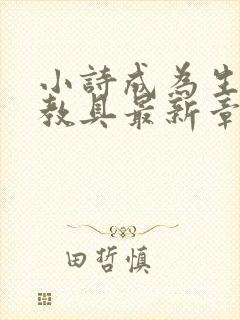 小詩成為生
教具最新章
田哲慎